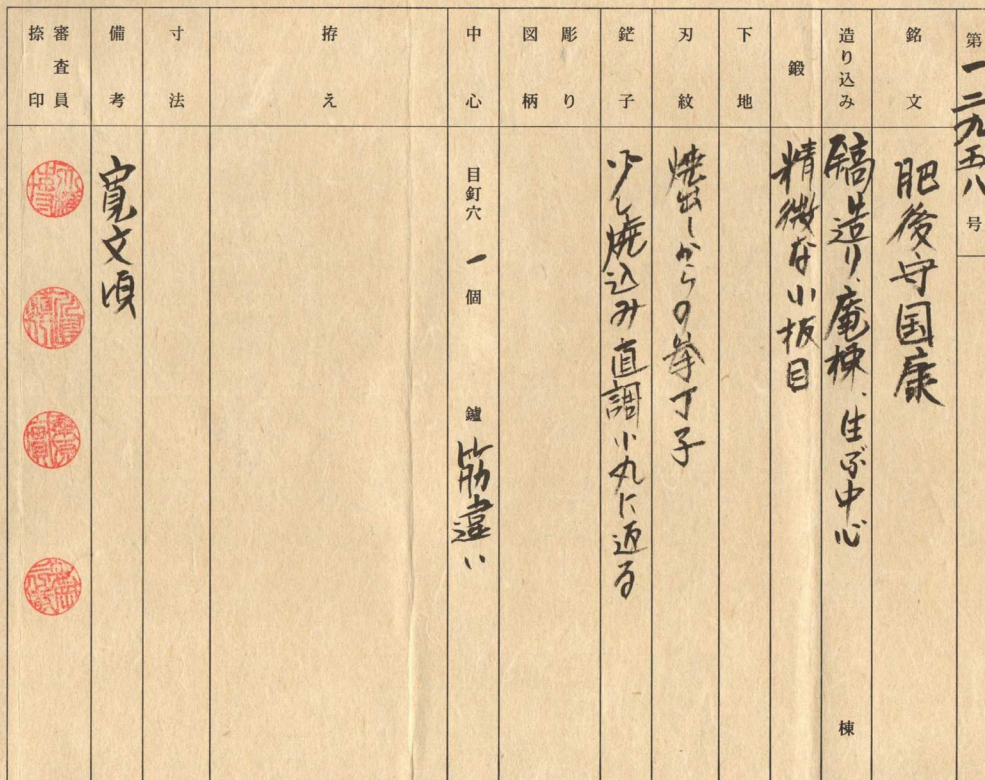 第一二九五八号
銘文 肥後守国康
造り込み 鎬造り、庵棟、生ぶ中心 棟
鍛 精微な小板目
下地
刃紋 焼出しからの拳丁子
鋩子 少し焼込み直調小丸に返る
彫り
図柄
中心 目釘穴 一 個 鑢 筋違い
拵え
寸法
備考 寛文頃
審査員
捺印